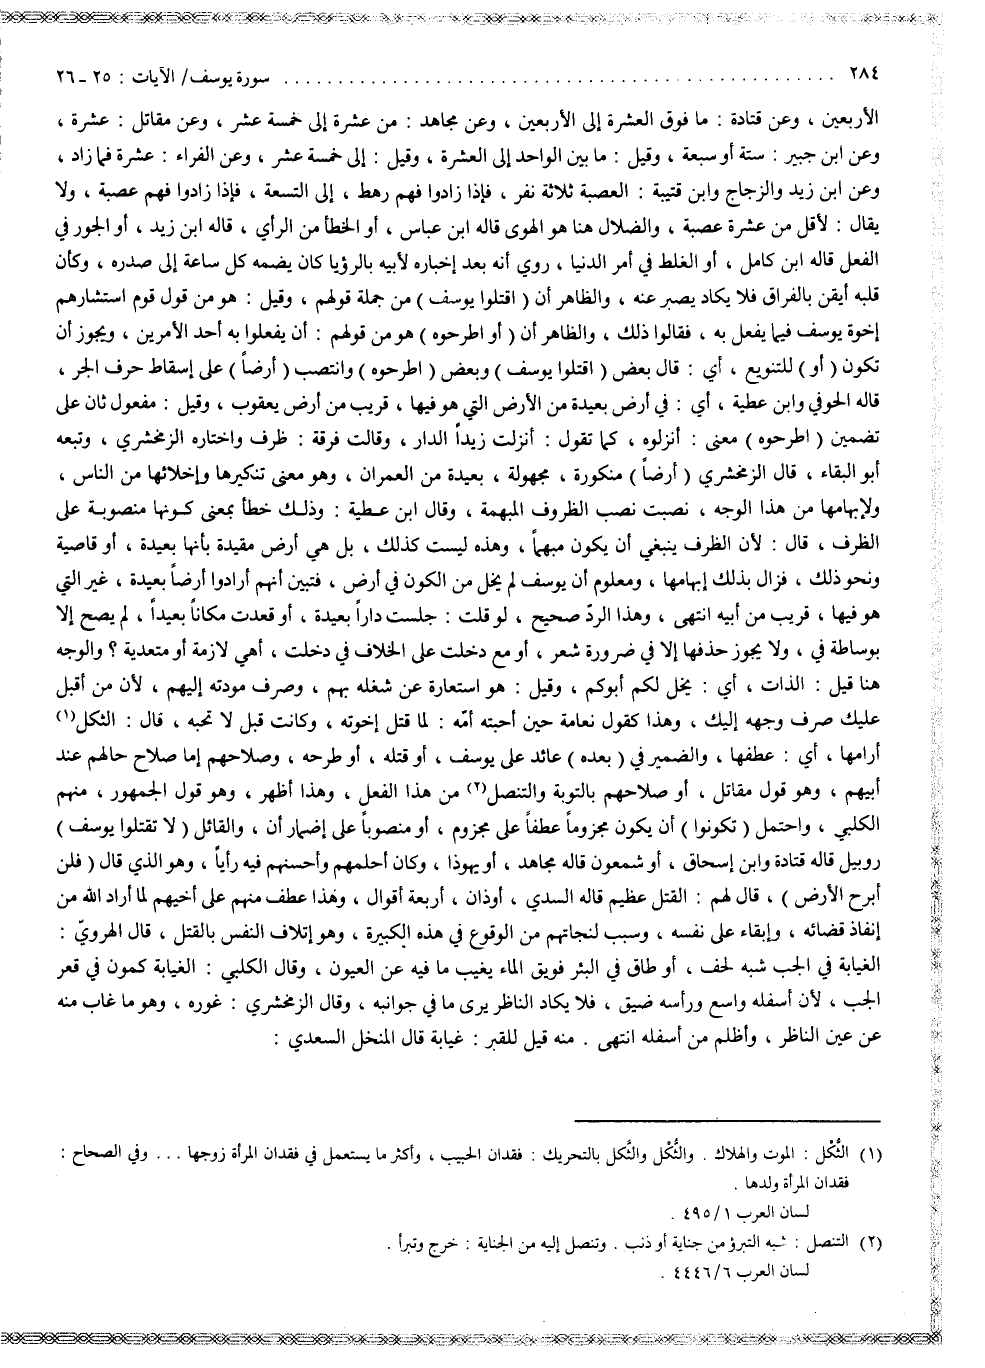 ٢٨٤ .................................................. سورة يوسف/ الآيات : ٢٥ ـ ٢٦
الأربعين ، وعن قتادة : ما فوق العشرة إلى الأربعين ، وعن مجاهد : من عشرة إلى خمسة عشر ، وعن مقاتل : عشرة ،
وعن ابن جبير : ستة أو سبعة ، وقيل : ما بين الواحد إلى العشرة ، وقيل : إلى خمسة عشر ، وعن الفراء : عشرة فما زاد ،
وعن ابن زيد والزجاج وابن قتيبة : العصبة ثلاثة نفر ، فإذا زادوا فهم رهط ، إلى التسعة ، فإذا زادوا فهم عصبة ، ولا
يقال : لأقل من عشرة عصبة ، والضلال هنا هو الهوى قاله ابن عباس ، أو الخطأ من الرأي ، قاله ابن زيد ، أو الجور في
الفعل قاله ابن كامل ، أو الغلط في أمر الدنيا ، روي أنه بعد إخباره لأبيه بالرؤيا كان يضمه كل ساعة إلى صدره ، وكأن
قلبه أيقن بالفراق فلا يكاد يصبر عنه ، والظاهر أن ( اقتلوا يوسف ) من جملة قولهم ، وقيل : هو من قول قوم استشارهم
إخوة يوسف فيما يفعل به ، فقالوا ذلك ، والظاهر أن ( أو اطرحوه ) هو من قولهم : أن يفعلوا به أحد الأمرين ، ويجوز أن
تكون ( أو ) للتنويع ، أي : قال بعض ( اقتلوا يوسف ) وبعض ( اطرحوه ) وانتصب ( أرضاً ) على إسقاط حرف الجر ،
قاله الحوفي وابن عطية ، أي : في أرض بعيدة من الأرض التي هو فيها ، قريب من أرض يعقوب ، وقيل : مفعول ثان على
تضمين ( اطرحوه ) معنى : أنزلوه ، كما تقول : أنزلت زيداً الدار ، وقالت فرقة : ظرف واختاره الزمخشري ، وتبعه
أبو البقاء ، قال الزمخشري ( أرضاً ) منكورة ، مجهولة ، بعيدة من العمران ، وهو معنى تنكيرها وإخلائها من الناس ،
ولإبهامها من هذا الوجه ، نصبت نصب الظروف المبهمة ، وقال ابن عطية : وذلك خطأ بمعنى كونها منصوبة على
الظرف ، قال : لأن الظرف ينبغي أن يكون مبهماً ، وهذه ليست كذلك ، بل هي أرض مقيدة بأنها بعيدة ، أو قاصية
ونحو ذلك ، فزال بذلك إبهامها ، ومعلوم أن يوسف لم يخل من الكون في أرض ، فتبين أنهم أرادوا أرضاً بعيدة ، غير التي
هو فيها ، قريب من أبيه انتهى ، وهذا الردّ صحيح ، لو قلت : جلست داراً بعيدة ، أو قعدت مكاناً بعيداً ، لم يصح إلا
بوساطة في ، ولا يجوز حذفها إلا في ضرورة شعر ، أو مع دخلت على الخلاف في دخلت ، أهي لازمة أو متعدية ؟ والوجه
هنا قيل : الذات ، أي : يخل لكم أبوكم ، وقيل : هو استعارة عن شغله بهم ، وصرف مودته إليهم ، لأن من أقبل
عليك صرف وجهه إليك ، وهذا كقول نعامة حين أحبته أمّه : لما قتل إخوته ، وكانت قبل لا تحبه ، قال : الثكل(١)
أرامها ، أي : عطفها ، والضمير في ( بعده ) عائد على يوسف ، أو قتله ، أو طرحه ، وصلاحهم إما صلاح حالهم عند
أبيهم ، وهو قول مقاتل ، أو صلاحهم بالتوبة والتنصل(٢) من هذا الفعل ، وهذا أظهر ، وهو قول الجمهور ، منهم
الكلبي ، واحتمل ( تكونوا ) أن يكون مجزوماً عطفاً على مجزوم ، أو منصوباً على إضمار أن ، والقائل ( لا تقتلوا يوسف )
روبيل قاله قتادة وابن إسحاق ، أو شمعون قاله مجاهد ، أو يهوذا ، وكان أحلمهم وأحسنهم فيه رأياً ، وهو الذي قال ( فلن
أبرح الأرض ) ، قال لهم : القتل عظيم قاله السدي ، أو ذان ، أربعة أقوال ، وهذا عطف منهم على أخيهم لما أراد الله من
إنفاذ قضائه ، وإبقاء على نفسه ، وسبب لنجاتهم من الوقوع في هذه الكبيرة ، وهو إتلاف النفس بالقتل ، قال الهرويّ :
الغيابة في الجب شبه لحف ، أو طاق في البئر فويق الماء يغيب ما فيه عن العيون ، وقال الكلبي : الغيابة كمون في قعر
الجب ، لأن أسفله واسع ورأسه ضيق ، فلا يكاد الناظر يرى ما في جوانبه ، وقال الزمخشري : غوره ، وهو ما غاب منه
عن عين الناظر ، وأظلم من أسفله انتهى . منه قيل للقبر : غيابة قال المنخل السعدي :
(١) الثُّكْل : الموت والهلاك . والثُّكْل والثَّكل بالتحريك : فقدان الحبيب ، وأكثر ما يستعمل في فقدان المرأة زوجها ... وفي الصحاح :
فقدان المرأة ولدها .
لسان العرب ٤٩٥/١ .
(٢) التنصل : شبه التبرؤ من جناية أو ذنب . وتنصل إليه من الجناية : خرج وتبرأ .
لسان العرب ٤٤٤٦/٦ .